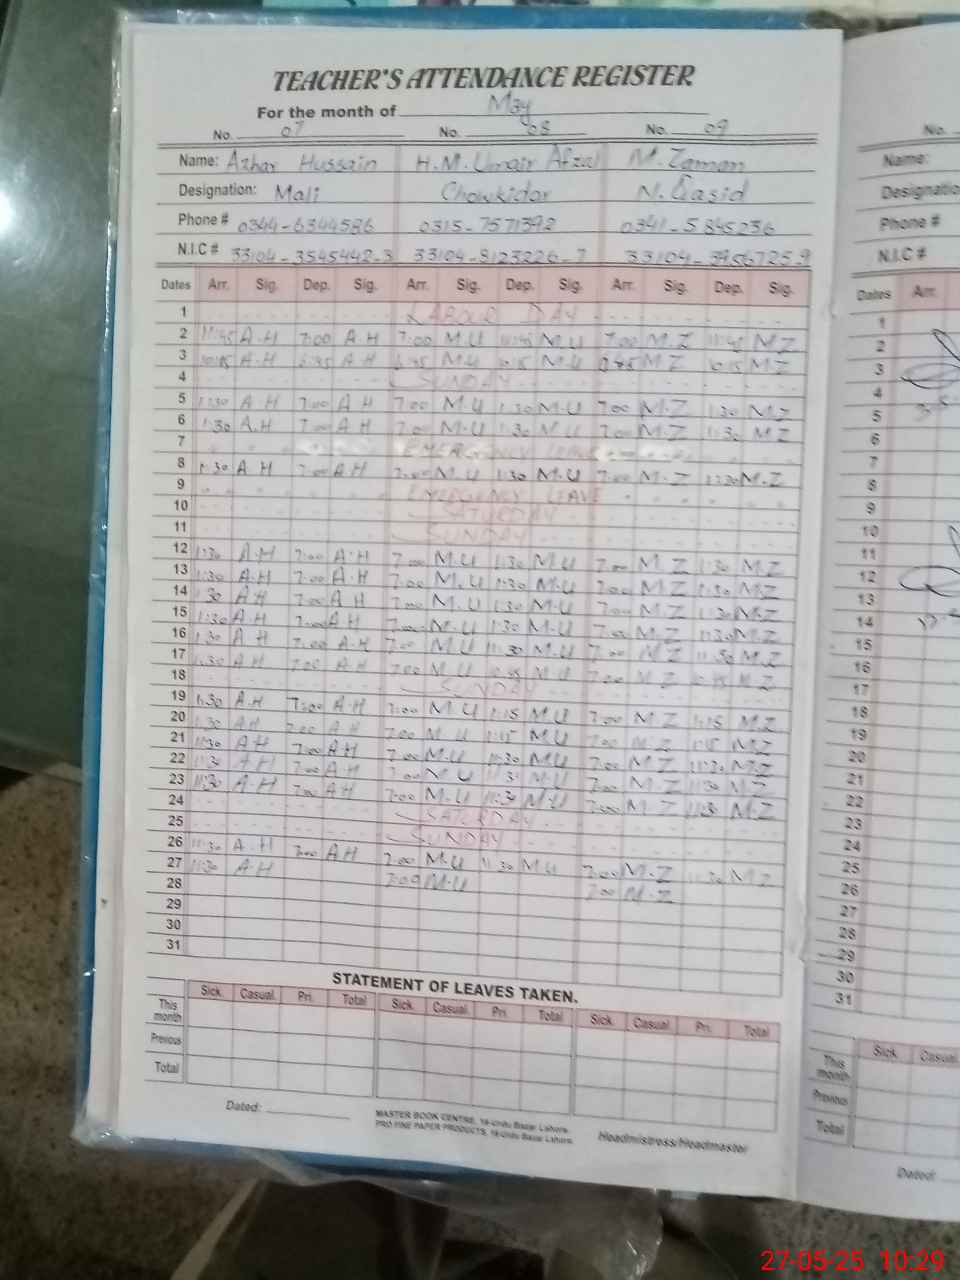 TEACHER'S ATTENDANCE REGISTER
For the month of May
No. 07 No. 08 No. 09
Name: Azhar Hussain H.M. Umair Afzal M. Zaman
Designation: Mali Chowkidar N. Qasid
Phone # 0344-6344586 0315-7571392 0341-5845236
N.I.C # 33104-3545442-3 33104-8123226-7 33104-3956725 9
Dates Arr. Sig. Dep. Sig. Arr. Sig. Dep. Sig. Arr. Sig. Dep. Sig.
1 LABOUR DAY
2 11:45 A.H 7:00 A.H 7:00 M.U 11:45 M.U 7:00 M.Z 11:45 M.Z
3 10:15 A.H 6:45 A.H 6:45 M.U 10:15 M.U M.Z 10:15 M.Z
4 SUNDAY
5 1:30 A.H 7:00 A.H 7:00 M.U 1:30 M.U 7:00 M.Z 1:30 M.Z
6 1:30 A.H 7:00 A.H 7:00 M.U 1:30 M.U 7:00 M.Z 1:30 M.Z
7 EMERGENCY LEAVE
8 1:30 A.H 7:00 A.H 7:00 M.U 1:30 M.U 7:00 M.Z 1:30 M.Z
9 EMERGENCY LEAVE
10 SATURDAY
11 SUNDAY
12 1:30 A.H 7:00 A.H 7:00 M.U 1:30 M.U 7:00 M.Z 1:30 M.Z
13 1:30 A.H 7:00 A.H 7:00 M.U 1:30 M.U 7:00 M.Z 1:30 M.Z
14 1:30 A.H 7:00 A.H 7:00 M.U 1:30 M.U 7:00 M.Z 1:30 M.Z
15 1:30 A.H 7:00 A.H 7:00 M.U 1:30 M.U 7:00 M.Z 1:30 M.Z
16 1:30 A.H 7:00 A.H 7:00 M.U 11:30 M.U 7:00 M.Z 11:30 M.Z
17 1:30 A.H 7:00 A.H 7:00 M.U 10:45 M.U 7:00 M.Z 10:45 M.Z
18 SUNDAY
19 1:30 A.H 7:00 A.H 7:00 M.U 1:15 M.U 7:00 M.Z 1:15 M.Z
20 1:30 A.H 7:00 A.H 7:00 M.U 1:15 M.U 7:00 M.Z 1:15 M.Z
21 11:30 A.H 7:00 A.H 7:00 M.U 11:30 M.U 7:00 M.Z 11:30 M.Z
22 11:30 A.H 7:00 A.H 7:00 M.U 11:30 M.U 7:00 M.Z 11:30 M.Z
23 11:30 A.H 7:00 A.H 7:00 M.U 11:30 M.U 7:00 M.Z 11:30 M.Z
24 SATURDAY
25 SUNDAY
26 11:30 A.H 7:00 A.H 7:00 M.U 11:30 M.U 7:00 M.Z 11:30 M.Z
27 11:30 A.H 7:00 M.U 7:00 M.Z
28
29
30
31
STATEMENT OF LEAVES TAKEN.
Sick. Casual. Pri. Total Sick. Casual. Pri. Total Sick. Casual. Pri. Total
This month
Previous
Total
Dated:
MASTER BOOK CENTRE, 16-Urdu Bazar Lahore.
PRO FINE PAPER PRODUCTS, 16-Urdu Bazar Lahore.
Headmistress/Headmaster
No.
Name:
Designatio
Phone #
N.I.C #
Dates Arr.
1
2
3
4
5
6
7
8
9
10
11
12
13
14
15
16
17
18
19
20
21
22
23
24
25
26
27
28
29
30
31
Sick. Casual
This month
Previous
Total
Dated:
27-05-25 10:29